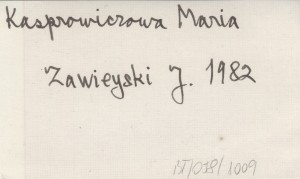 Kasprowiczowa Maria
Zawieyski J. 1982
BT/078/1009